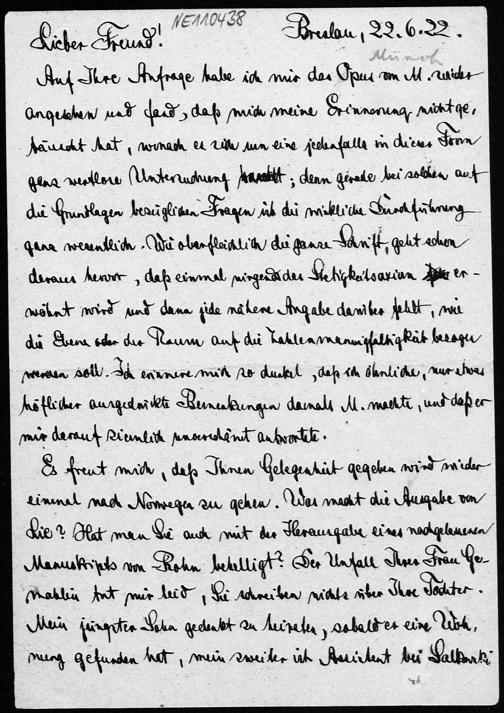 NE110438
Lieber Freund!
Breslau, 22.6.22.
Münch
Auf Ihre Anfrage habe ich mir das Opus von M. wieder
angesehen und fand, daß mich meine Erinnerung nicht ge,
täuscht hat, wonach es sich um eine jedenfalls in dieser Form
ganz wertlose Untersuchung ; denn gerade bei solchen auf
die Grundlagen bezüglichen Fragen ist die wirkliche Durchführung
ganz wesentlich. Wie oberflächlich die ganze Schrift, geht schon
daraus hervor, daß einmal nirgends das Stetigkeitsaxiom er-
wähnt wird und dann jede nähere Angabe darüber fehlt, wie
die Ebene oder der Raum auf die Zahlenmannigfaltigkeit bezogen
werden soll. Ich erinnere mich so dunkel, daß ich ähnliche, nur etwas
höflicher ausgedrückte Bemerkungen damals M. machte, und daß er
mir darauf ziemlich unverschämt antwortete.
Es freut mich, daß Ihnen Gelegenheit gegeben wird wieder
einmal nach Norwegen zu gehen. Was macht die Ausgabe von
Lie? Hat man Sie auch mit der Herausgabe eines nachgelassenen
Manuskripts von Rohn behelligt? Der Unfall Ihrer Frau Ge-
mahlin tut mir leid, Sie schreiben nichts über Ihre Tochter.
Mein jüngster Sohn gedenkt zu heiraten, sobald er eine Woh,
nung gefunden hat, mein zweiter ist Assistent bei